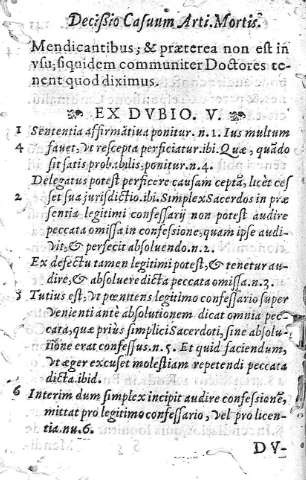 Decisio Casuum Arti. Mortis.
Mendicantibus; & præterea non est in
vsu, siquidem communiter Doctores te-
nent quod diximus.
EX DVBIO. V.
1 Sententia affirmatiua ponitur. n.1. Ius multum
4 fauet, vt rescepta perficiatur. ibi. Quæ, quãdo
sit satis probabilis, ponitur. n.4.
Delegatus potest perficere causam ceptã, licèt ces
2 set sua jurisdictio. ibi. Simplex Sacerdos in præ
sentia legitimi confessarij non potest audire
peccata omissa in confessione, quam ipse audi-
uit, & perfecit absoluendo. n.2.
Ex defectu tamen legitimi potest, & tenetur au-
dire, & absoluere dicta peccata omissa. n.3.
3 Tutius est, vt pœnitens legitimo confessario super
venienti ante absolutionem dicat omnia pec-
cata, quæ priùs simplici Sacerdoti, sine absolu-
tione erat confessus. n.5. Et quid faciendum,
vt æger excuset molestiam repetendi peccata
dicta. ibid.
6 Interim dum simplex incipit audire confessionẽ,
mittat pro legitimo confessario, vel pro licen-
tia. nu.6.
DV-